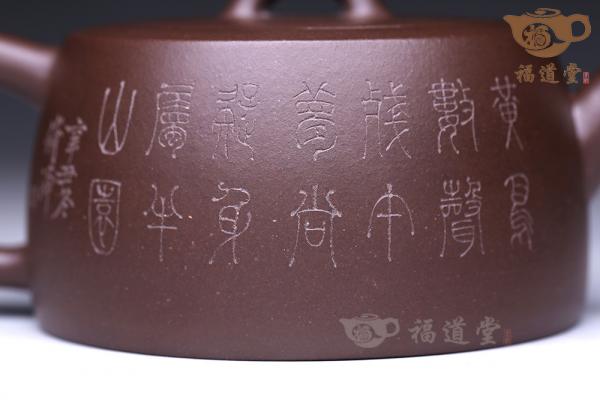 黃鳥
數聲
殘午
夢尚
疑身
屬半
山園
福道堂
福道堂